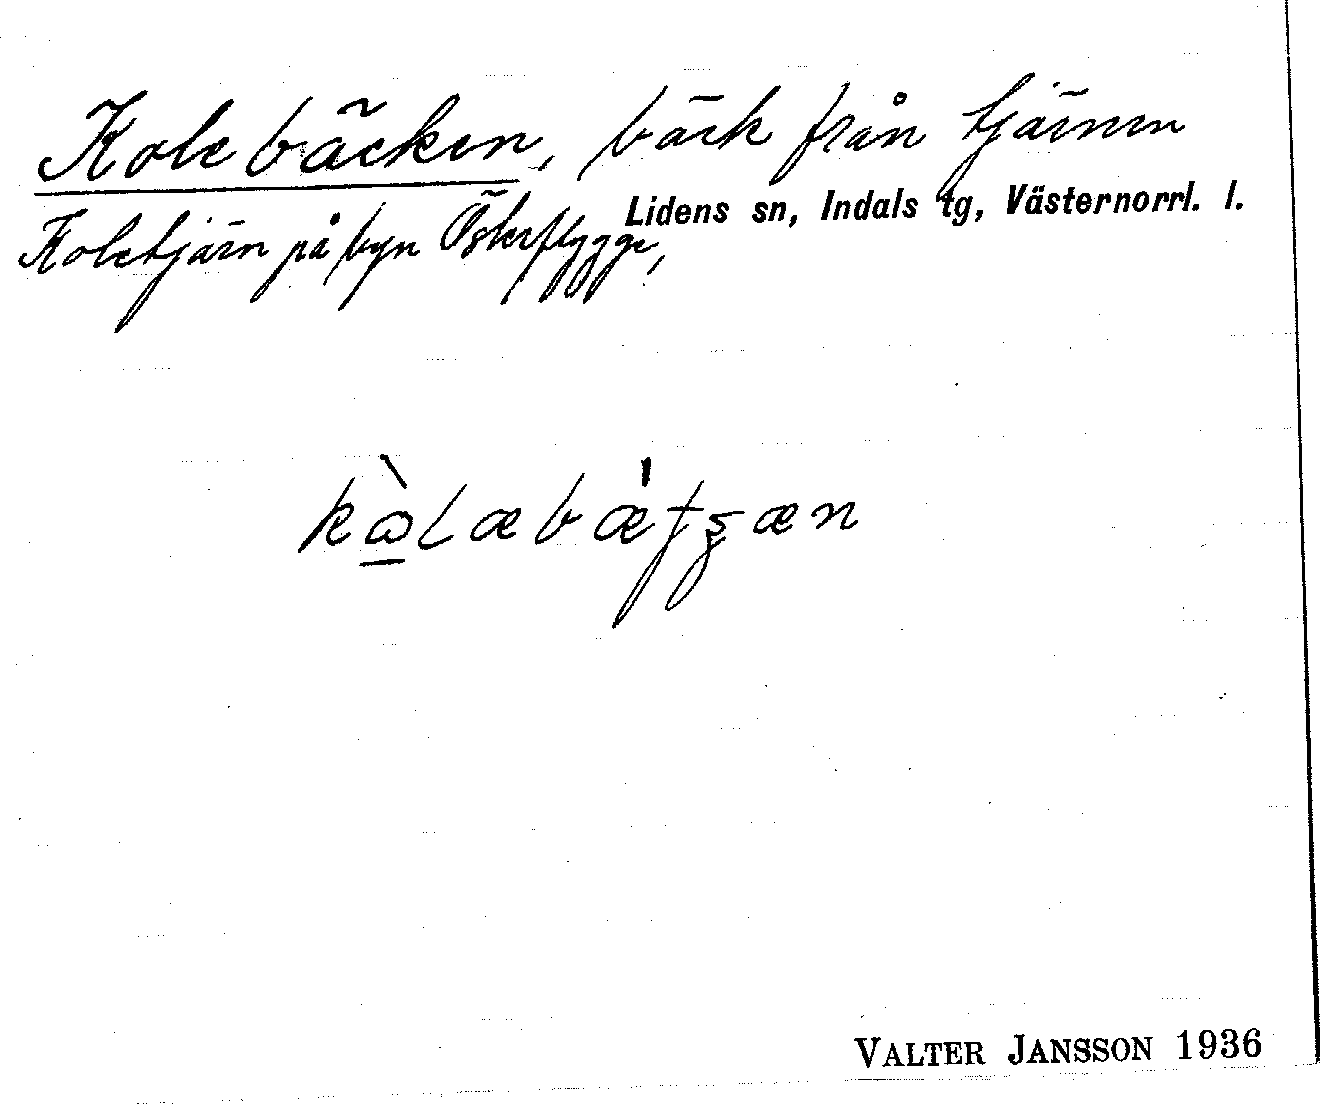 Kolebäcken, bäck från tjärnen
Lidens sn, Indals tg, Västernorrl. l.
Koletjärn på byn Österflygge,
VALTER JANSSON 1936